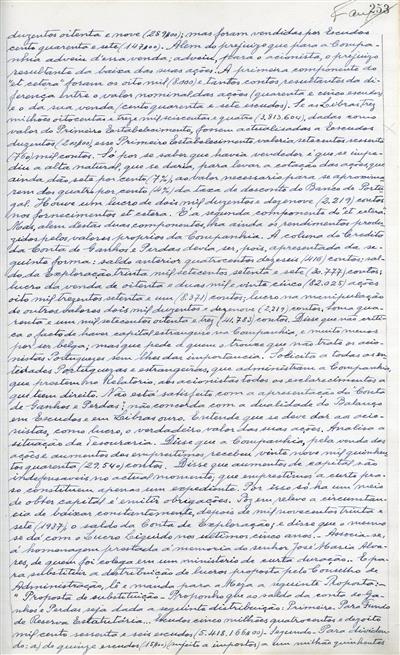 253
duzentos oitenta e nove (289$00); mas foram vendidas por Escudos
cento quarenta e sete (147$00). Além do prejuizo que para a Compa-
nhia adveiu dessa venda; adveiu, para o acionista, o prejuizo
resultante da baixa das suas ações. A primeira componente do
"et cetera" foram os oito mil (8.000) e tantos contos resultantes da di-
ferença entre o valor nominal das ações (quarenta e cinco escudos)
e o da sua venda (cento quarenta e sete escudos). Se as Libras três
milhões oitocentas e treze mil seiscentas e quatro (3,813,604), dadas como
valor do Primeiro Estabelecimento, fossem actualisadas a Escudos
duzentos (200$00), esse Primeiro Estabelecimento valeria setecentos sessenta
(760) mil contos. Só por se saber que havia vendedor é que se impe-
diu a alta natural, que se daria, para levar a cotação das ações, que
ainda dão, sete por cento (7%), ao valor necessario para se aproxima-
rem dos quatro por cento (4%) da taxa de desconto do Banco de Portu-
gal. Houve um lucro de dois mil duzentos e dezenove (2.219) contos
nos fornecimentos et cetera. É a segunda componente do "et cetera".
Mas, alem destas duas componentes, ha ainda os rendimentos produ-
zidos pelos valores proprios da Companhia. A coluna do Credito
da Conta de Ganhos e Perdas devia ser, pois, apresentada da se-
guinte forma: saldo anterior quatrocentos dezeseis (416) contos; sal-
do da Exploração trinta mil setecentos setenta e sete (30.777) contos;
lucro da venda de oitenta e duas mil e vinte cinco (82.025) ações
oito mil trezentos setenta e um (8.371) contos; lucro na manipulação
de outros valores dois mil duzentos e dezenove (2.219) contos, soma qua-
renta e um mil setecentos oitenta e três (41.783) contos. Disse que não critica
o facto de haver capital estrangeiro na Companhia, e muito menos
por ser belga; mas que pede a quem o trouxe que não trate os acio-
nistas Portugueses sem lhes dar importancia. Solicita a todas as en-
tidades Portuguesas e estrangeiras, que administram a Companhia,
que prestem no Relatorio, aos acionistas todos os esclarecimentos a
que teem direito. Não está satisfeito com a apresentação da Conta
de Ganhos e Perdas; não concorda com a dualidade de Balanço
em Escudos e em Libras ouro. Entende que se deve dar aos acio-
nistas, como lucro, o verdadeiro valor das suas ações. Analisa a
situação da Tesouraria. Disse que a Companhia, pela venda das
ações e aumentos dos emprestimos, recebeu vinte nove mil quinhen-
tos quarenta (29.540) contos. Disse que aumentos de capital são
indispensaveis no actual momento, que emprestimos a curto pra-
so constituem apenas um expediente. Por isso só ha um meio
de obter capital: é emitir obrigações. Poz em relevo a circunstan-
cia de baixar constantemente, depois de mil novecentos trinta e
sete (1937), o saldo da Conta de Exploração; e disse que o mesmo
se dá com o Lucro Liquido nos ultimos cinco anos. Associa-se,
á homenagem prestada á memoria do senhor José Maria Alva-
res, de quem foi colega em um ministerio de curta duração. E pa-
ra substituir a distribuição de lucros proposta pelo Conselho de
Administração, lê e manda para a Meza a seguinte Proposta:
"Proposta de substituição - Proponho que ao saldo da conta de Ga-
nhos e Perdas seja dada a seguinte distribuição: Primeiro. Para Fundo
de Reserva Estatutaria... Escudos cinco milhões quatrocentos e dezoito
mil cento sessenta e seis escudos (5.418.166$00). Segundo. Para dividen-
do: a) de quinze escudos (15$00) (sujeito a impostos) a um milhão quinhentas